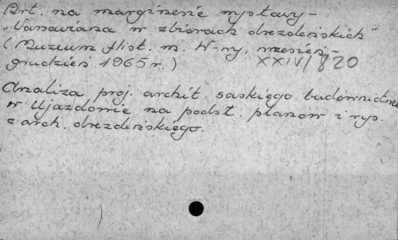 Art. na marginesie wystawy -
"Varsaviana w zbiorach drezdeńskich"
(Muzeum Hist. m. W-wy, wrzesień -
grudzień 1965 r.) XXIV/820
Analiza proj. archit. saskiego budownictwa
w Ujazdowie na podst. planów i rys.
z arch. drezdeńskiego.